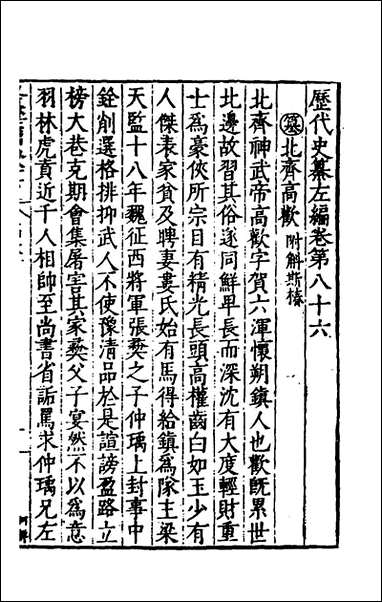 歷代史纂左編卷第八十六
簒北齊高歡附斛斯椿
北齊神武帝高歡字賀六渾懷朔鎮人也歡旣累世
北邊故習其俗遂同鮮卑長而深沈有大度輕財重
士爲豪俠所宗目有精光長頭高權齒白如玉少有
人傑表家貧及聘妻婁氏始有馬得給鎮爲隊主梁
天監十八年魏征西將軍張彝之子仲瑀上封事中
銓削選格排抑武人不使豫清品於是諠謗盈路立
榜大巷克期會集屠害其家彝父子宴然不以爲意
羽林虎賁近千人相帥至尚書省詬罵求仲瑀兄左